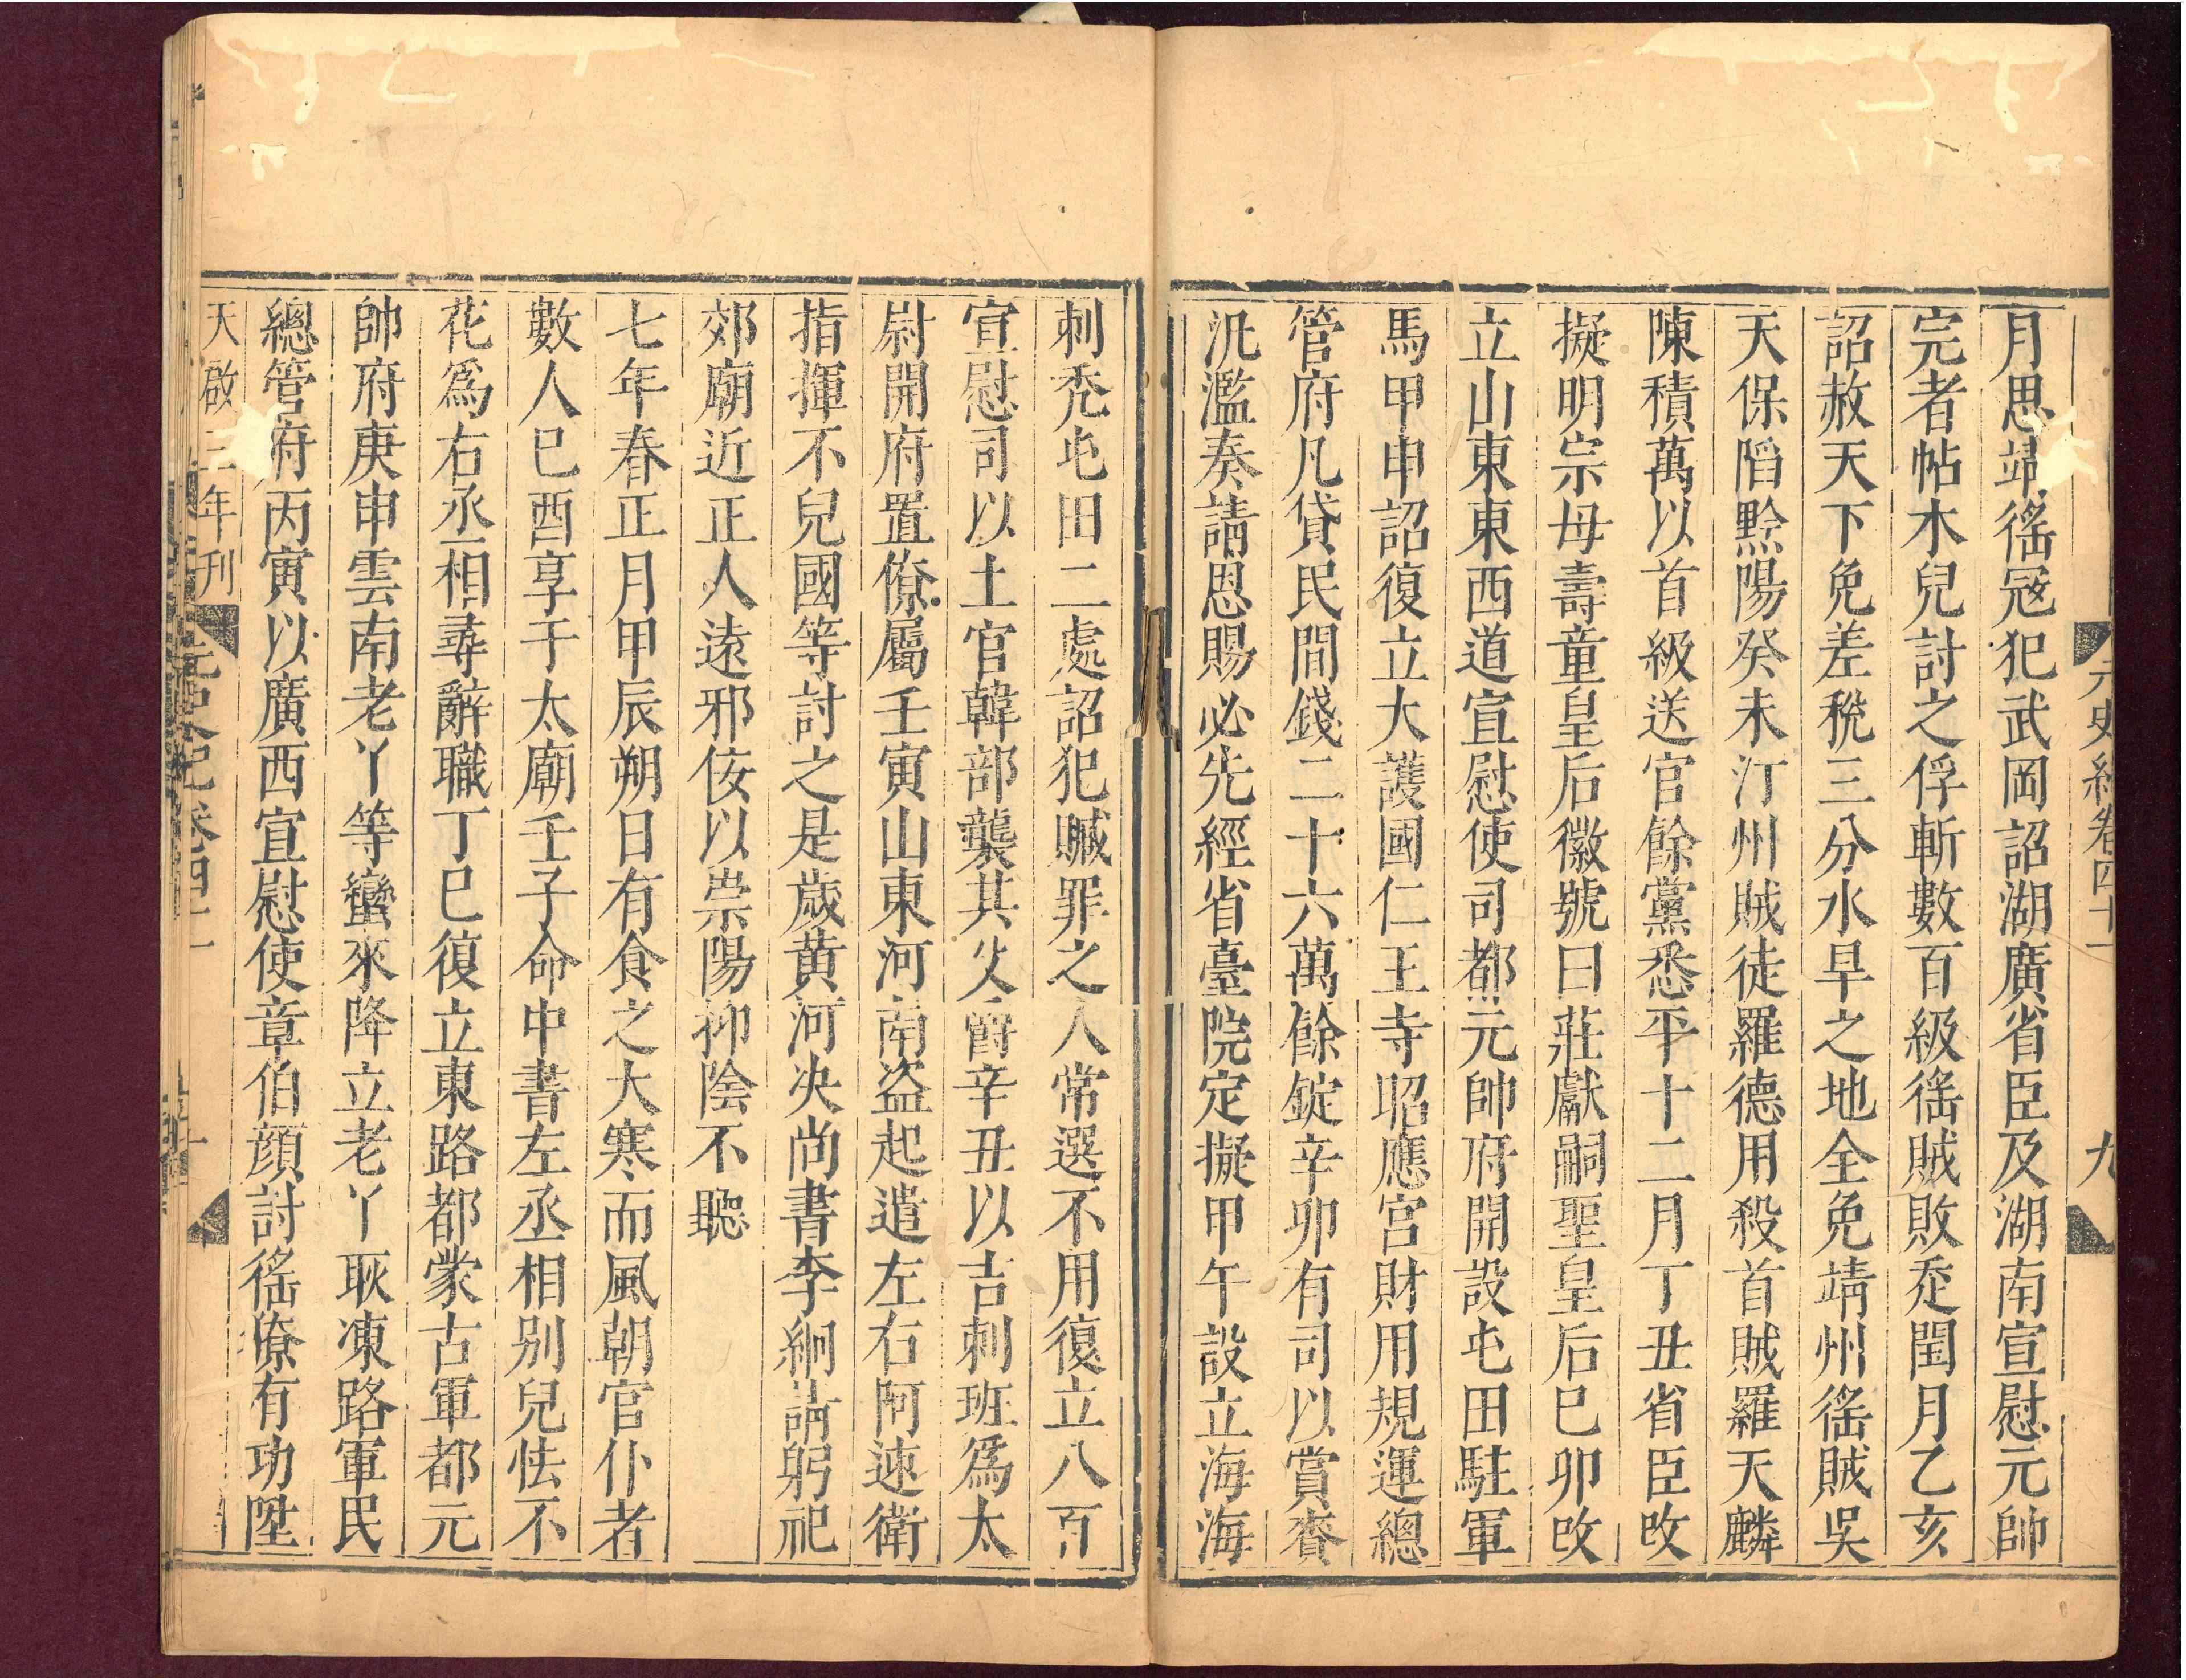 元史紀卷四十一 九
月思靖徭冦犯武岡詔湖廣省臣及湖南宣慰元帥
完者帖木兒討之俘斬數百級徭賊敗走閏月乙亥
詔赦天下免差稅三分水旱之地全免靖州徭賊吳
天保陷黔陽癸未汀州賊徒羅德用殺首賊羅天麟
陳積萬以首級送官餘黨悉平十二月丁丑省臣改
擬明宗母壽童皇后徽號曰莊獻嗣聖皇后巳卯改
立山東東西道宣慰使司都元帥府開設屯田駐軍
馬甲申詔復立大護國仁王寺昭應宮財用規運總
管府凡貸民間錢二十六萬餘錠辛卯有司以賞賚
汎濫奏請恩賜必先經省臺院定擬甲午設立海海
剌禿屯田二處詔犯贓罪之人常選不用復立八百
宣慰司以土官韓部襲其父爵辛丑以吉剌班爲太
尉開府置僚屬壬寅山東河南盜起遣左右阿速衛
指揮不兒國等討之是歲黃河决尚書李絅請躬祀
郊廟近正人遠邪佞以崇陽抑陰不聽
七年春正月甲辰朔日有食之大寒而風朝官仆者
數人巳酉享于太廟壬子命中書左丞相别兒怯不
花爲右丞相尋辭職丁巳復立東路都蒙古軍都元
帥府庚申雲南老丫等蠻來降立老丫耿凍路軍民
總管府丙寅以廣西宣慰使章伯顔討徭僚有功陞
天啟三年刊 元史紀卷四十一 十